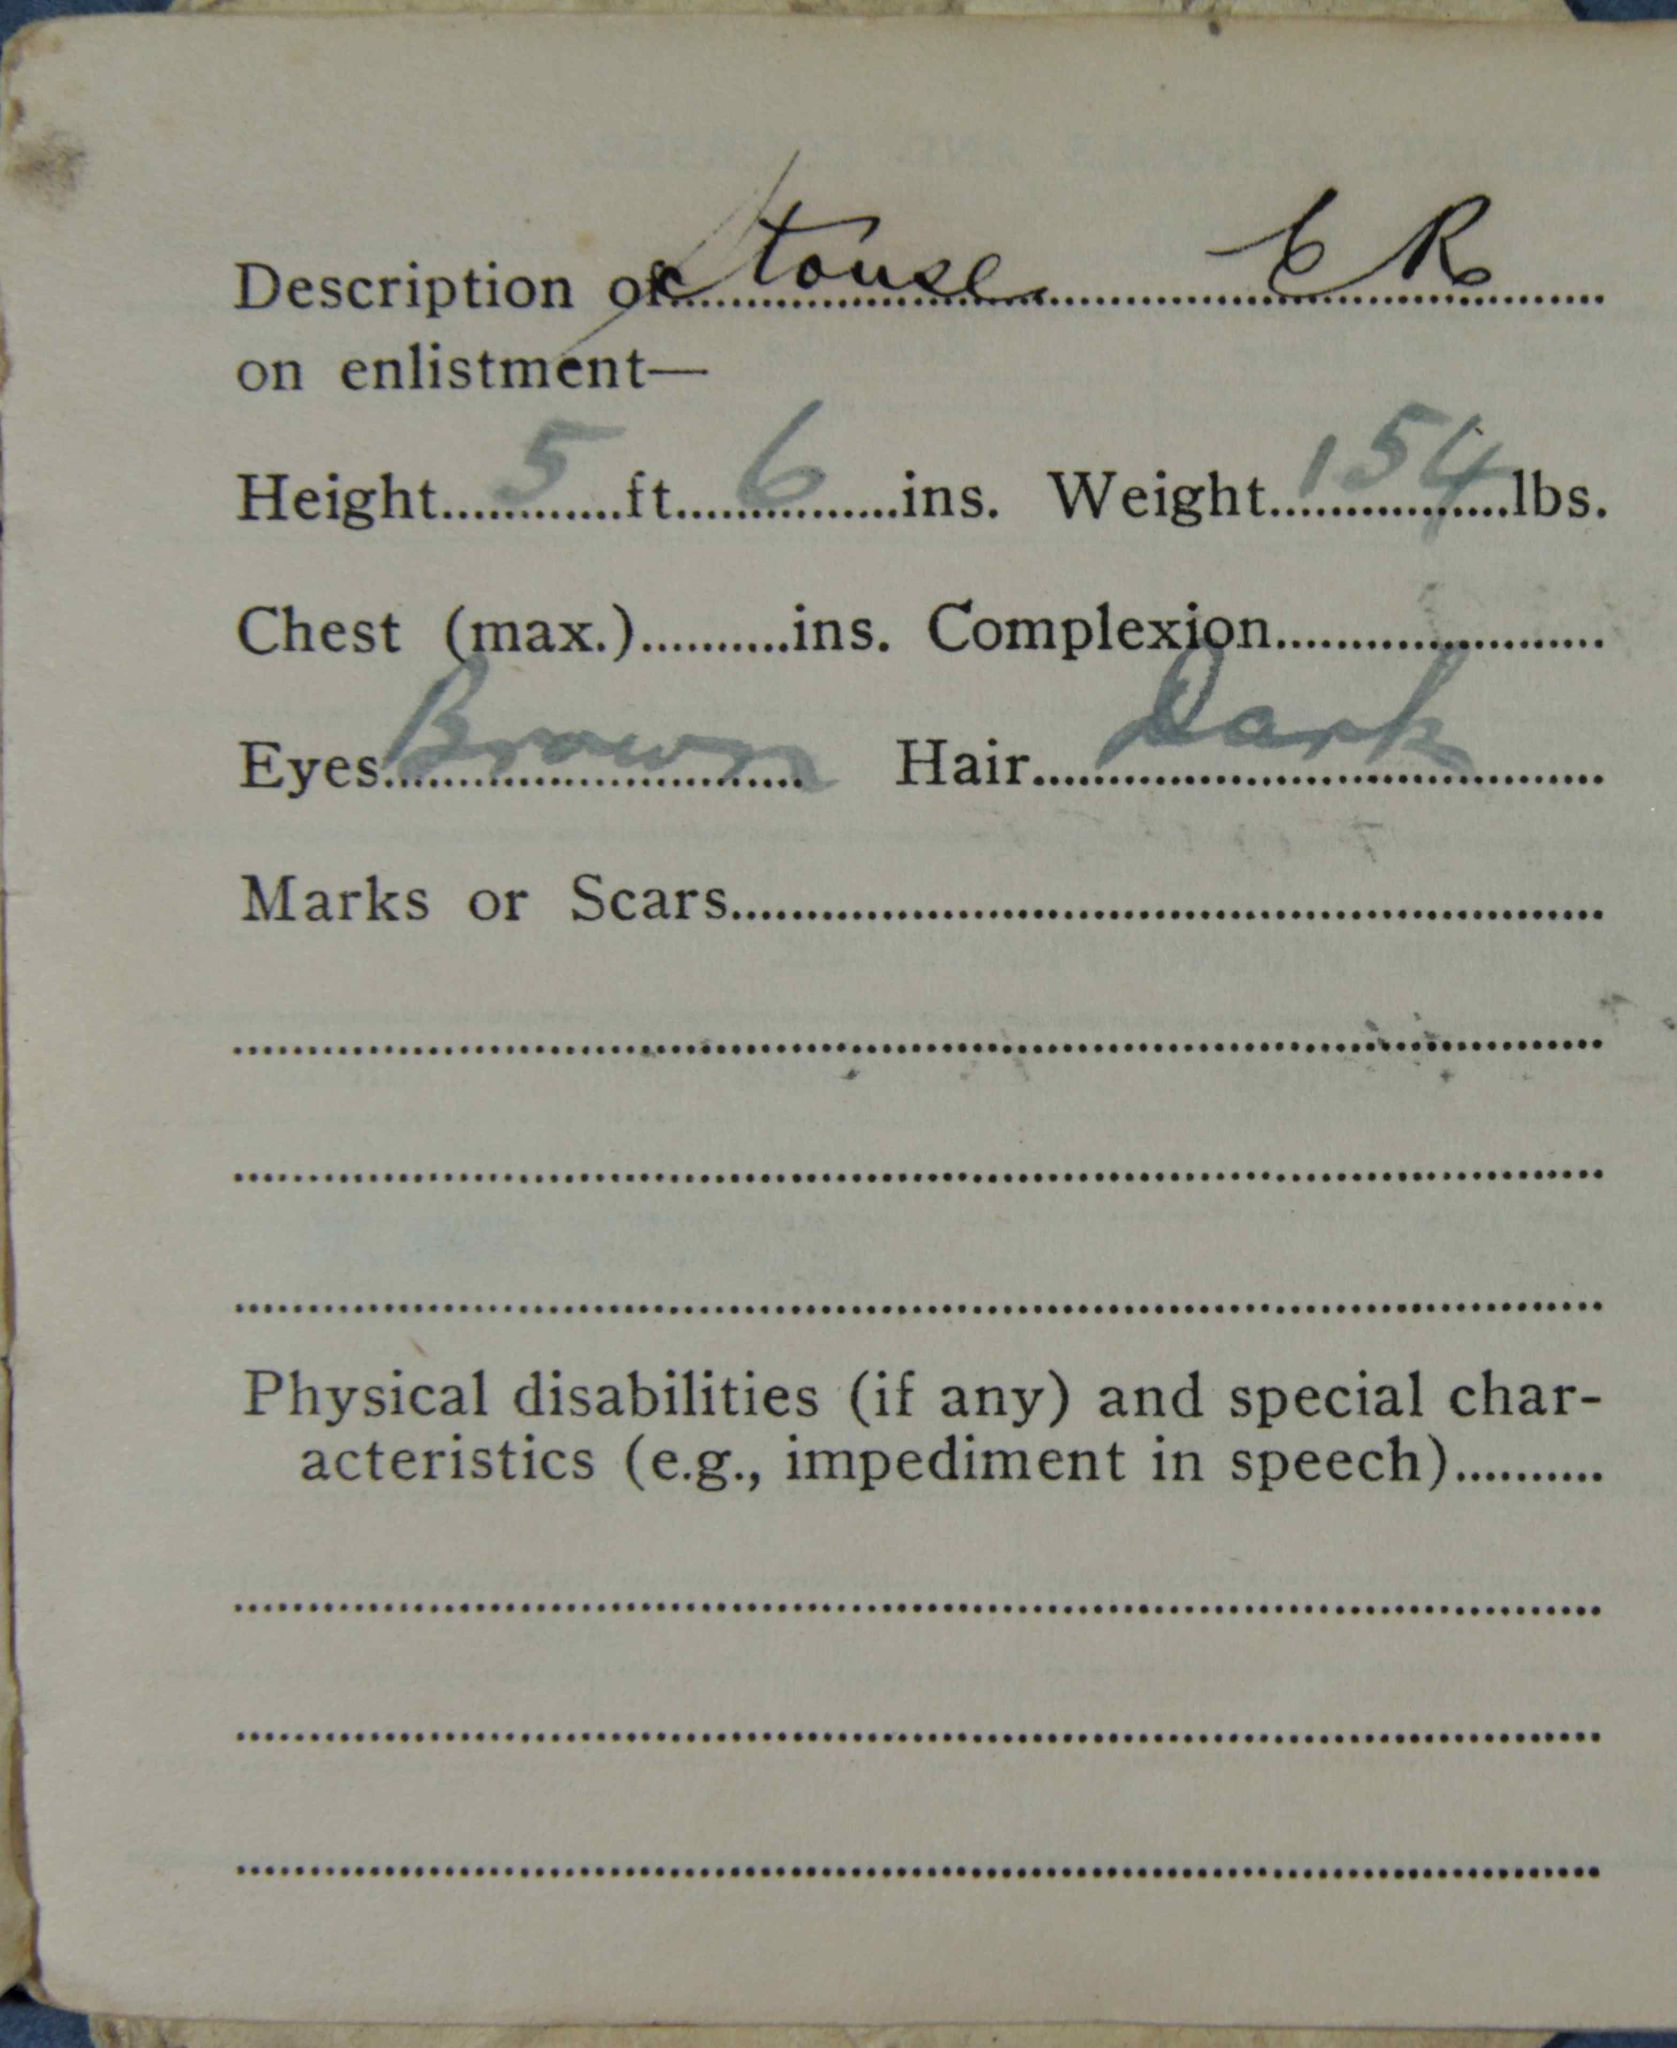 Description of Stouse E R
on enlistment—
Height 5 ft 6 ins. Weight 154 lbs.
Chest (max.)..........ins. Complexion......................
Eyes Brown Hair Dark
Marks or Scars..........................................................
Physical disabilities (if any) and special char-
acteristics (e.g., impediment in speech)..........